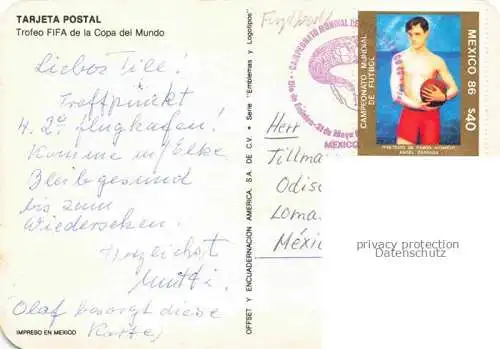 TARJETA POSTAL
Trofeo FIFA de la Copa del Mundo
Liebos Till!
Treffpunkt
4. 2º flughafen!
Komme m/ Elke
Bleib gesund
bis zum
Wiedersehen.
Herzlichst
Mutti!
Olaf besorgt diese
Karte)
IMPRESO EN MEXICO
OFFSET Y ENCUADERNACION AMERICA, S.A. DE C.V. • Serie "Emblemas y Logotipos"
CAMPEONATO MUNDIAL DE
31 de Mayo
MEXICO
CAMPEONATO MUNDIAL
DE FUTBOL
MEXICO 86 $40
ANGEL ZARRAGA
Herr
Tillma
Odis
Loma
Méxi
privacy protection
Datenschutz